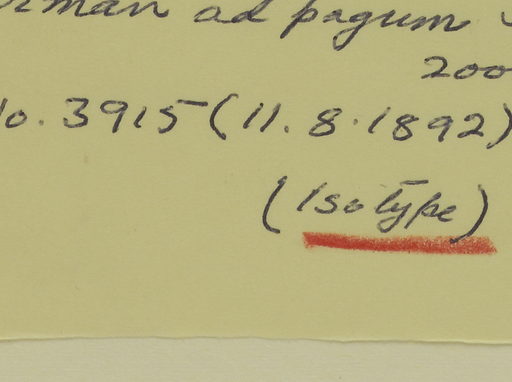 ad pagum
200
No. 3915 (11. 8. 1892)
(Isotype)